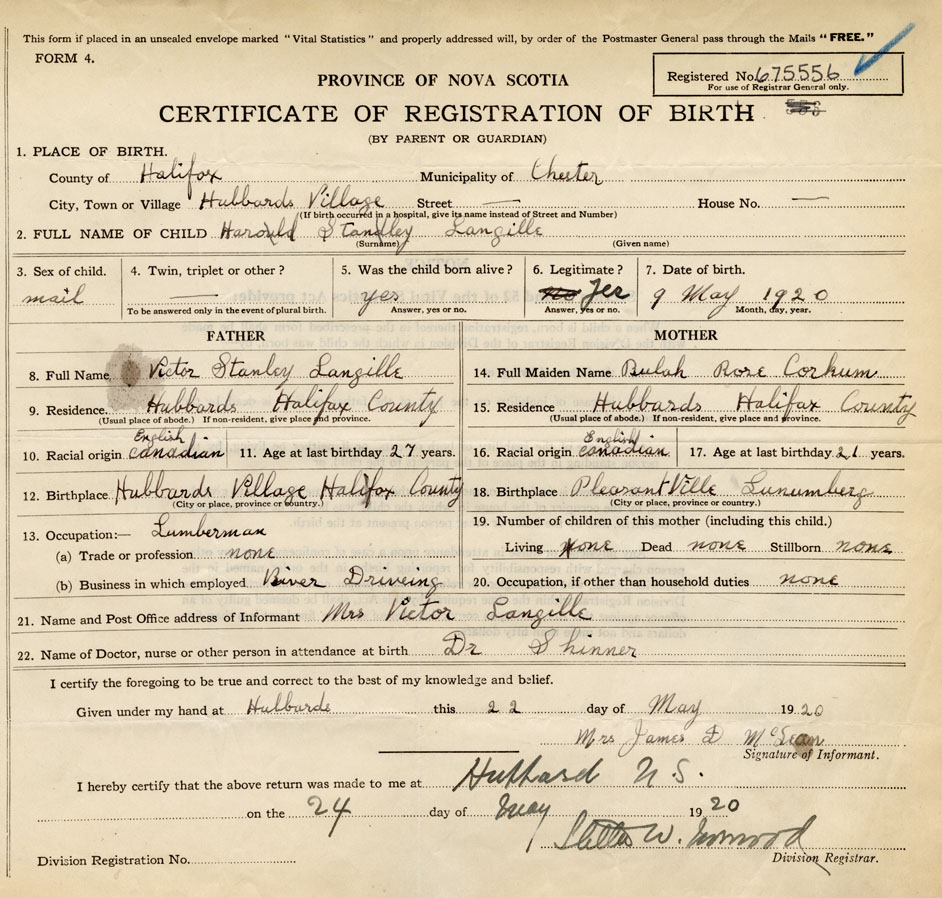 This form if placed in an unsealed envelope marked "Vital Statistics" and properly addressed will, by order of the Postmaster General pass through the Mails "FREE."
FORM 4.
Registered No. 675556
For use of Registrar General only.
PROVINCE OF NOVA SCOTIA
CERTIFICATE OF REGISTRATION OF BIRTH
(BY PARENT OR GUARDIAN)
1. PLACE OF BIRTH.
County of Halifax Municipality of Chester
City, Town or Village Hubbards Village Street — House No. —
(If birth occurred in a hospital, give its name instead of Street and Number)
2. FULL NAME OF CHILD Harould Standley Langille
(Surname) (Given name)
3. Sex of child. 4. Twin, triplet or other? 5. Was the child born alive? 6. Legitimate? 7. Date of birth.
mail — yes no yes 9 May 1920
To be answered only in the event of plural birth. Answer, yes or no. Answer, yes or no. Month, day, year.
FATHER MOTHER
8. Full Name Victor Stanley Langille 14. Full Maiden Name Bulah Rose Corkum
9. Residence. Hubbards Halifax County 15. Residence Hubbards Halifax County
(Usual place of abode.) If non-resident, give place and province. (Usual place of abode.) If non-resident, give place and province.
English English
10. Racial origin canadian 11. Age at last birthday 27 years. 16. Racial origin canadian 17. Age at last birthday 21 years.
12. Birthplace Hubbards Village Halifax County 18. Birthplace Pleasant Ville Lunumberg
(City or place, province or country.) (City or place, province or country.)
13. Occupation:— Lumberman 19. Number of children of this mother (including this child.)
(a) Trade or profession none Living none Dead none Stillborn none
(b) Business in which employed River Driveing 20. Occupation, if other than household duties none
21. Name and Post Office address of Informant Mrs Victor Langille
22. Name of Doctor, nurse or other person in attendance at birth Dr Shinner
I certify the foregoing to be true and correct to the best of my knowledge and belief.
Given under my hand at Hubbards this 22 day of May 1920
Mrs James D McLean
Signature of Informant.
I hereby certify that the above return was made to me at Hubbard N.S.
on the 24 day of May 1920
W.
Division Registration No. Division Registrar.